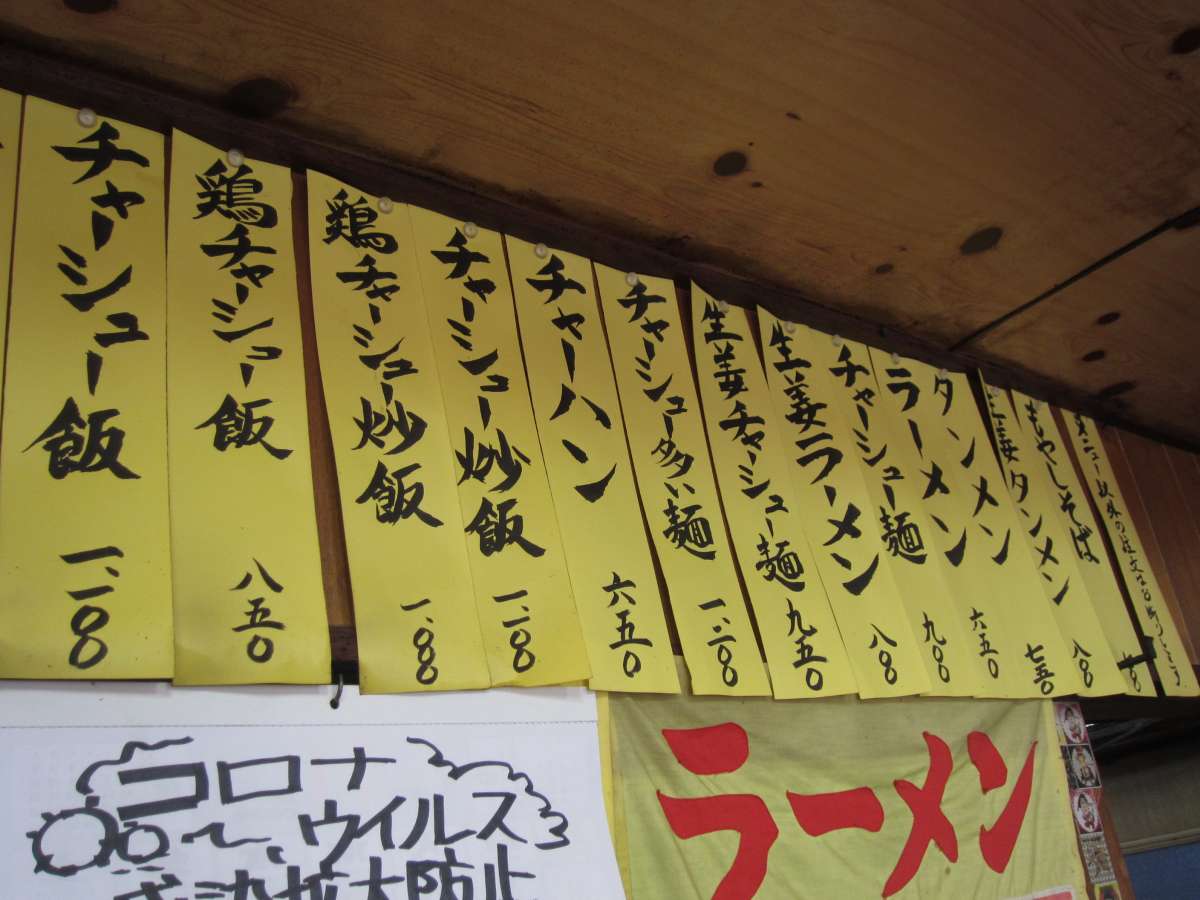 メニュー以外の注文はお断り
もやしそば
生姜タンメン 八〇〇
タンメン 七五〇
ラーメン 六五〇
チャーシュー麺 九〇〇
生姜ラーメン 八〇〇
生姜チャーシュー麺 九五〇
チャーシュー多い麺 一、二〇〇
チャーハン 六五〇
チャーシュー炒飯 一、一〇〇
鶏チャーシュー炒飯 一、〇〇〇
鶏チャーシュー飯 八五〇
チャーシュー飯 一、一〇〇
コロナ
ウイルス
感染拡大防止
ラーメン